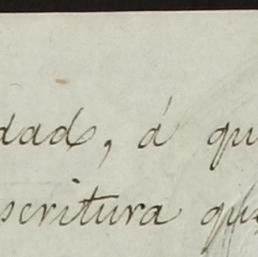 dad, á qu
scritura que